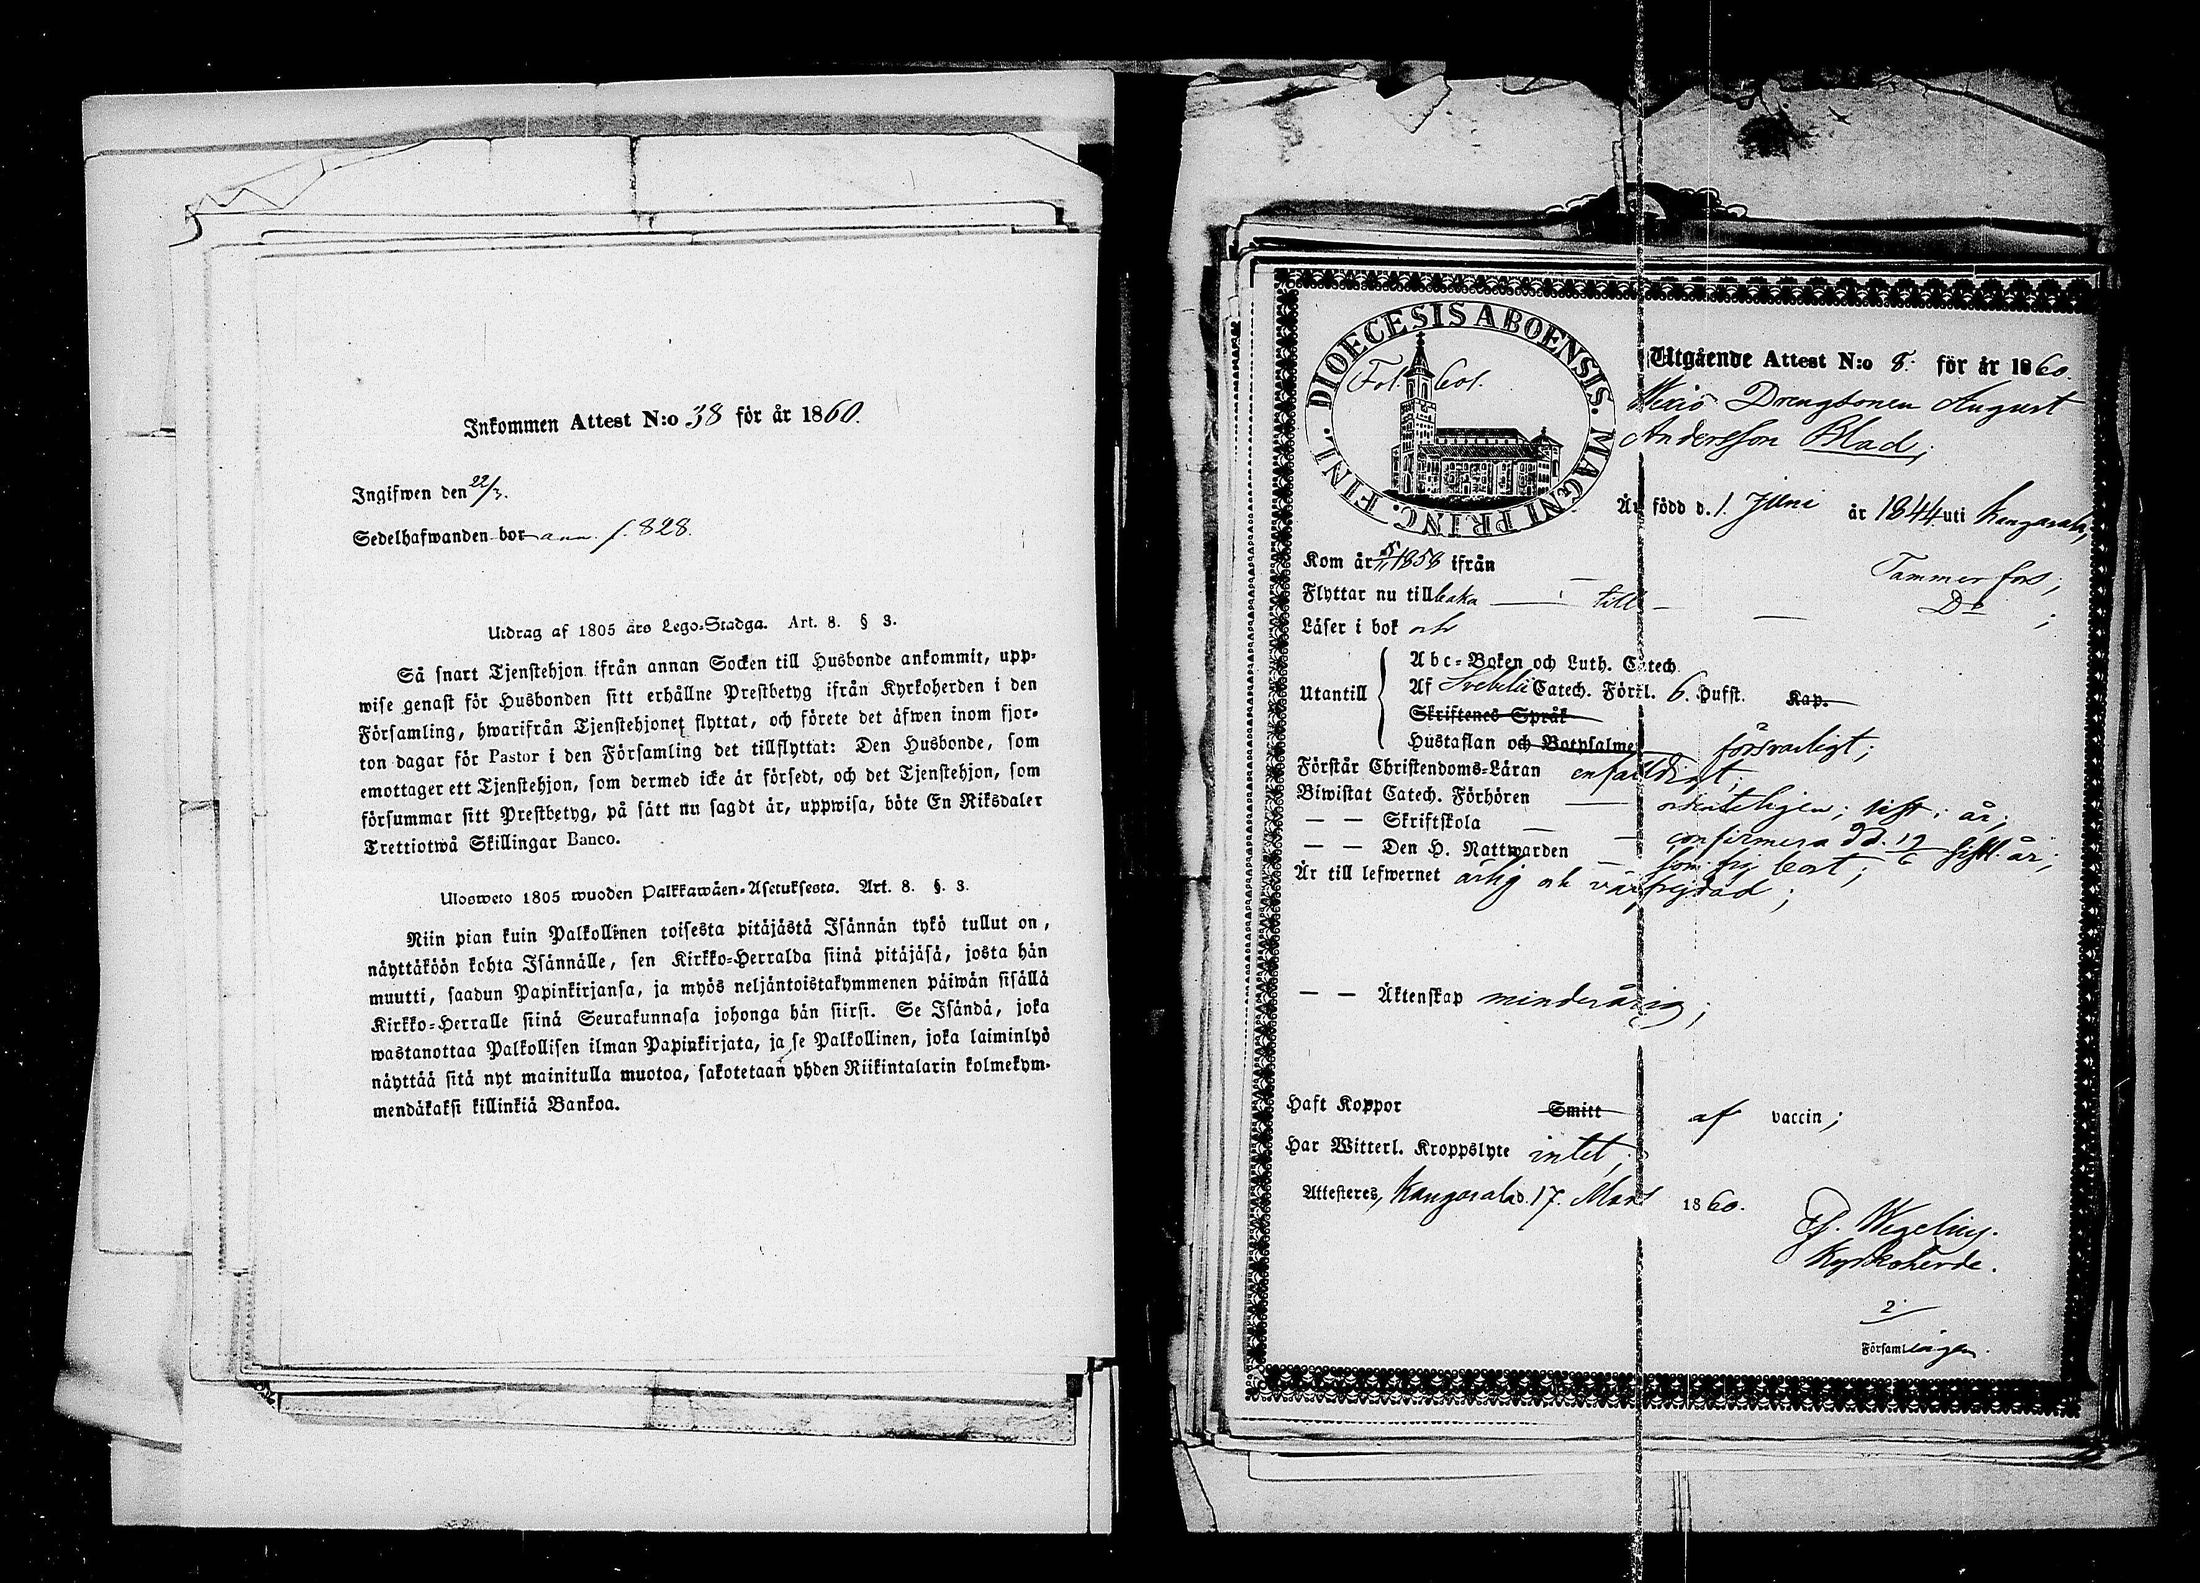 Inkommen Attest N:o 38 för år 1860.
Ingifwen den 22/3.
Sedelhafwanden bor ann. f. 828.
Utdrag af 1805 års Lego-Stadga. Art. 8. § 3.
Så snart Tjenstehjon ifrån annan Socken till Husbonde ankommit, upp-
wise genast för Husbonden sitt erhållne Prestbetyg ifrån Kyrkoherden i den
Församling, hwarifrån Tjenstehjonet flyttat, och förete det äfwen inom fjor-
ton dagar för Pastor i den Församling det tillflyttat: Den Husbonde, som
emottager ett Tjenstehjon, som dermed icke är försedt, och det Tjenstehjon, som
försummar sitt Prestbetyg, på sätt nu sagdt är, uppwisa, böte En Riksdaler
Trettiotwå Skillingar Banco.
Ulosweto 1805 wuoden Palkkawäen-Asetuksesta. Art. 8. §. 3.
Niin pian kuin Palkollinen toisesta pitäjästä Isännän tykö tullut on,
näyttäköön kohta Isännälle, sen Kirkko-Herralda siinä pitäjäsä, josta hän
muutti, saadun Papinkirjansa, ja myös neljäntoistakymmenen päiwän sisällä
Kirkko-Herralle siinä Seurakunnasa johonga hän siirsi. Se Isändä, joka
wastanottaa Palkollisen ilman Papinkirjata, ja se Palkollinen, joka laiminlyö
näyttää sitä nyt mainitulla muotoa, sakotetaan yhden Riikintalarin kolmekym-
mendäkaksi killinkiä Bankoa.
DIOECESIS ABOENSIS. MAGNI PRINC. FINL.
Fol. 601.
Utgående Attest N:o 8. för år 1860.
Drengsonen August
Andersson Blad;
Är född d. 1. Juni år 1844 uti Kangasala,
Kom år 1858 ifrån Tammerfors,
Flyttar nu tillbaka — till — Do;
Läser i bok och
Abc-Boken och Luth. Catech.
Utantill Af Svebelii Catech. Förkl. 6. Hufst. Kap.
Skriftenes Språk
Hustaflan och Botpsalmer försvarligt;
Förstår Christendoms-Läran enfaldigt;
Biwistat Catech. Förhören — ordenteligen; sist. i år;
— — Skriftskola —
— — Den H. Nattwarden — confirmerad d. sistl. år;
Är till lefwernet ärlig och väl frejdad; som frig bort;
— — Äktenskap minderårig;
Haft Koppor Smitt af vaccin;
Har Witterl. Kroppslyte intet;
Attesteres, Kangasala d. 17. Mars 1860.
Wegelius.
Kyrkoherde.
2.
Församlingen.